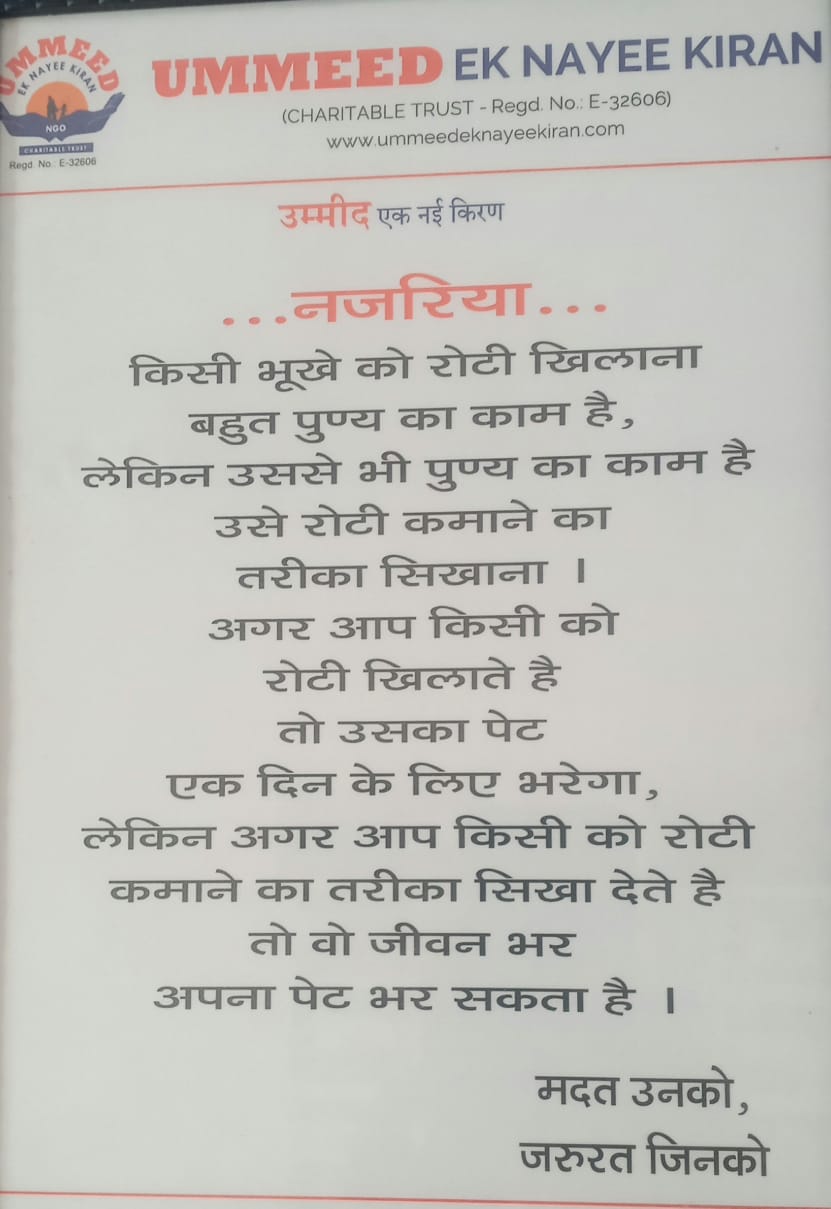 UMMEED
EK NAYEE KIRAN
NGO
CHARITABLE TRUST
Regd. No.: E-32606
UMMEED EK NAYEE KIRAN
(CHARITABLE TRUST - Regd. No.: E-32606)
www.ummeedeknayeekiran.com
उम्मीद एक नई किरण
...नजरिया...
किसी भूखे को रोटी खिलाना
बहुत पुण्य का काम है,
लेकिन उससे भी पुण्य का काम है
उसे रोटी कमाने का
तरीका सिखाना ।
अगर आप किसी को
रोटी खिलाते है
तो उसका पेट
एक दिन के लिए भरेगा,
लेकिन अगर आप किसी को रोटी
कमाने का तरीका सिखा देते है
तो वो जीवन भर
अपना पेट भर सकता है ।
मदत उनको,
जरुरत जिनको